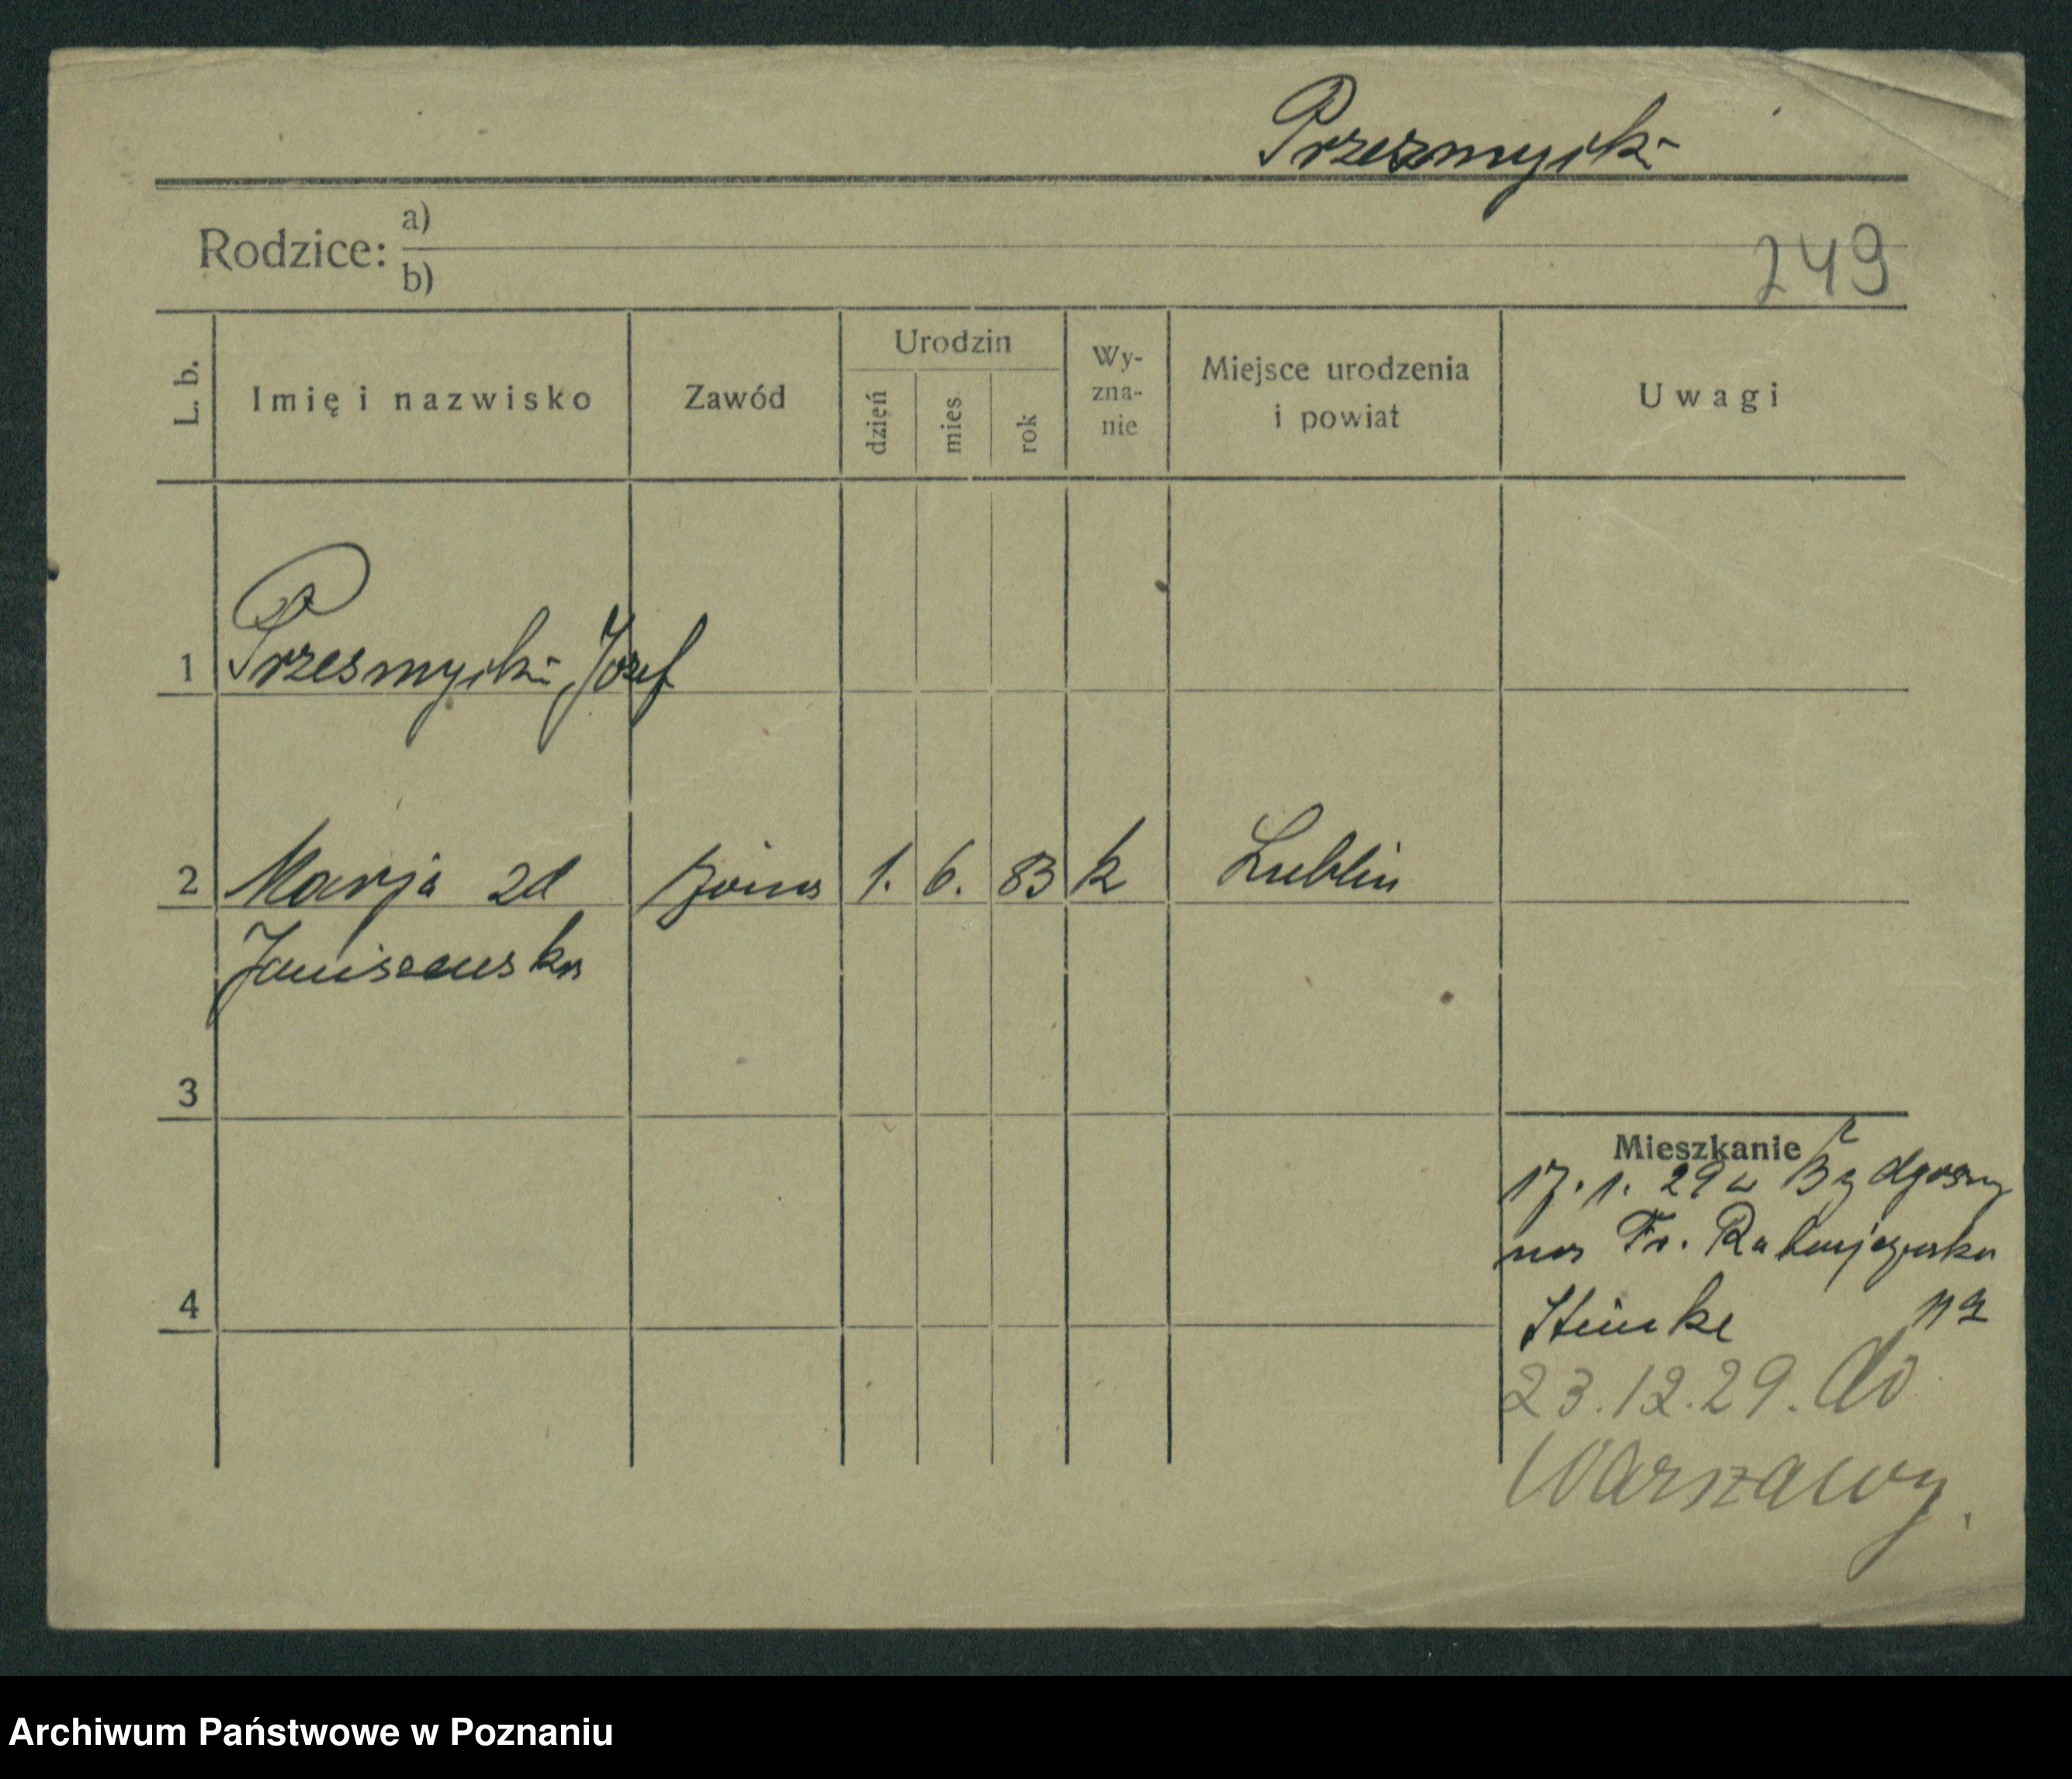 Przesmycki
Rodzice: a)
b)
249
L. b.
Imię i nazwisko
Zawód
Urodzin
dzień
mies.
rok
Wy-
zna-
nie
Miejsce urodzenia
i powiat
Uwagi
1 Przesmycki Józef
2 Marja zd żona 1. 6. 83 k Lublin
Janiszewska
3
4
Mieszkanie z
17. 1. 29 w Bydgoszcz
na Fr. Ratajczaka
23.12.29. do
Warszawy.
Archiwum Państwowe w Poznaniu